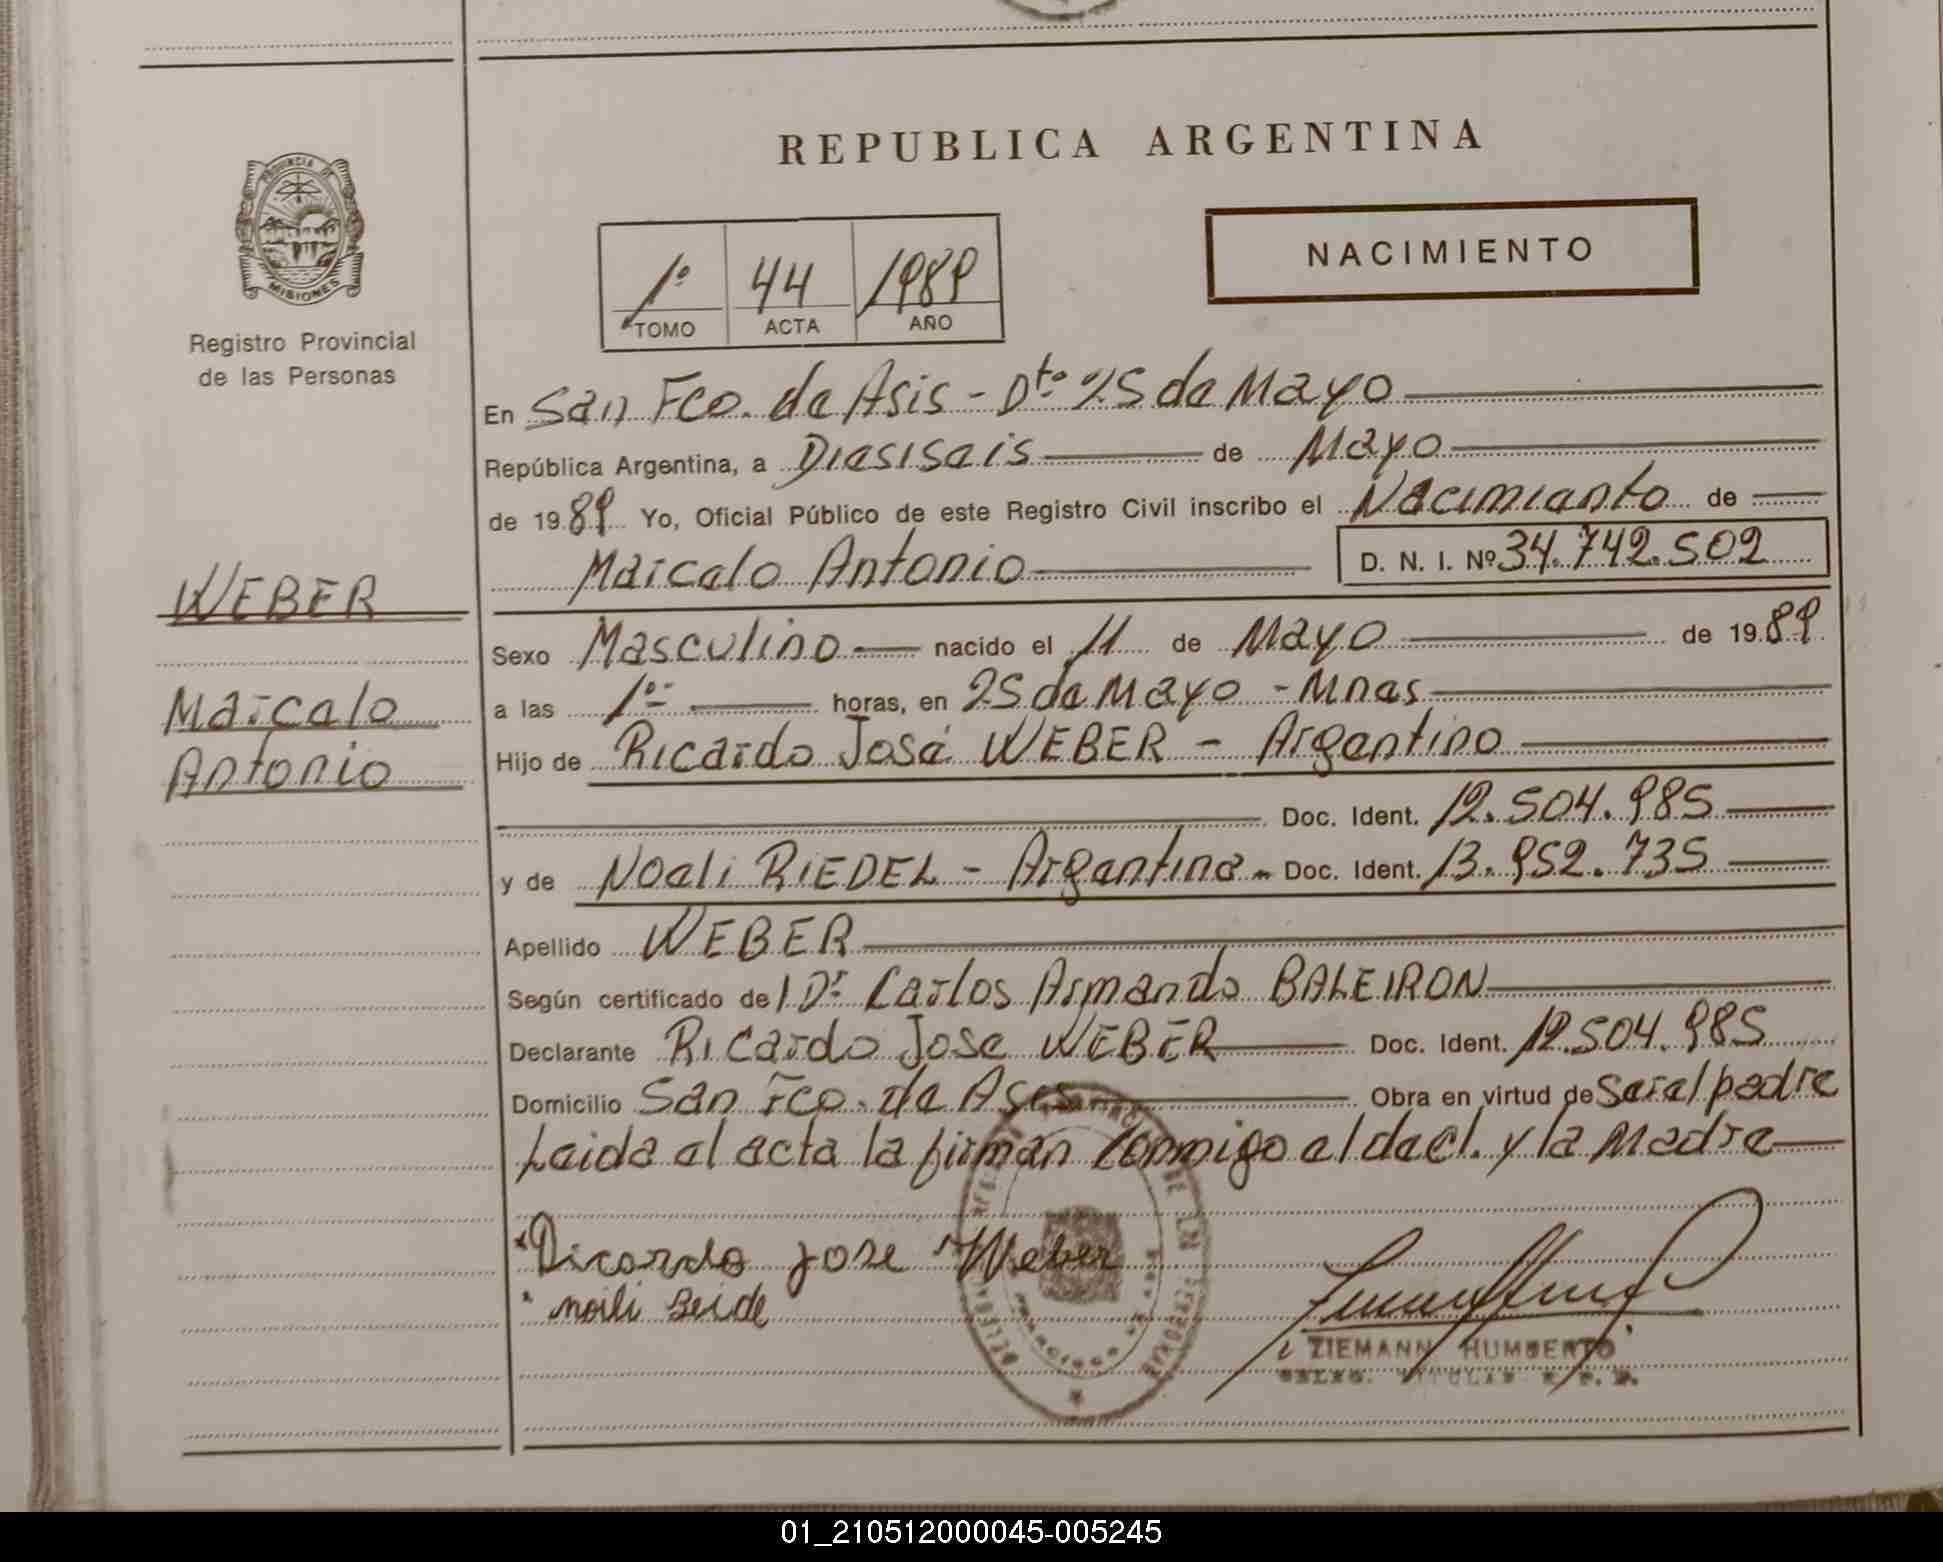 REPUBLICA ARGENTINA
PROVINCIA DE MISIONES
Registro Provincial
de las Personas
NACIMIENTO
1º 44 1989
TOMO ACTA AÑO
En San Fco. de Asis - Dto 25 de Mayo
República Argentina, a Diesiseis de Mayo
de 1989 Yo, Oficial Público de este Registro Civil inscribo el Nacimiento de
Marcelo Antonio D. N. I. Nº 34.742.502
WEBER
Marcelo
Antonio
Sexo Masculino nacido el 11 de Mayo de 1989
a las 1º horas, en 25 de Mayo - Mnes
Hijo de Ricardo José WEBER - Argentino
Doc. Ident. 12.504.985
y de Noeli RIEDEL - Argentina - Doc. Ident. 13.952.735
Apellido WEBER
Según certificado del Dr Carlos Armando BALEIRON
Declarante Ricardo Jose WEBER Doc. Ident. 12.504.985
Domicilio San Fco. de Asis Obra en virtud de Ser el padre
Leida el acta la firman conmigo el decl. y la Madre
Ricardo jose Weber
ZIEMANN HUMBERTO
01_210512000045-005245